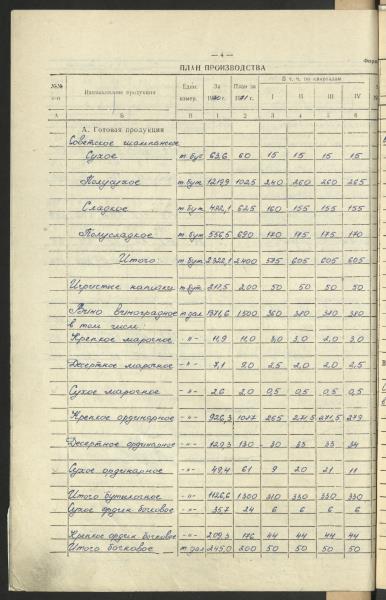 — 4 —
ПЛАН ПРОИЗВОДСТВА
№№ п-п Наименование продукции Един. измер. За 1970 г. План за 1971 г. В т. ч. по кварталам
I II III IV
А Б В 1 2 3 4 5 6
А. Готовая продукция
Советское шампанское
Сухое т.бут 63,6 60 15 15 15 15
Полусухое т.бут 1219,9 1025 240 260 260 265
Сладкое т.бут 482,1 625 160 155 155 155
Полусладкое т.бут 556,5 690 170 175 175 170
Итого: т.бут 2322,1 2400 585 605 605 605
Игристые напитки т.бут 217,5 200 50 50 50 50
Вино виноградное т.дал 1371,6 1500 360 380 380 380
в том числе:
Крепкое марочное -"- 11,9 11,0 3,0 3,0 2,0 3,0
Десертное марочное -"- 7,1 9,0 2,5 2,0 2,0 2,5
Сухое марочное -"- 2,6 2,0 0,5 0,5 0,5 0,5
Крепкое ординарное -"- 926,3 1087 265 271,5 271,5 279
Десертное ординарное -"- 129,3 130 30 33 33 34
Сухое ординарное -"- 49,4 61 9 20 21 11
Итого бутылочное -"- 1126,6 1300 310 330 330 330
Сухое ордин. бочковое -"- 35,7 24 6 6 6 6
Крепкое ордин бочковое -"- 209,3 176 44 44 44 44
Итого бочковое т.дал 245,0 200 50 50 50 50